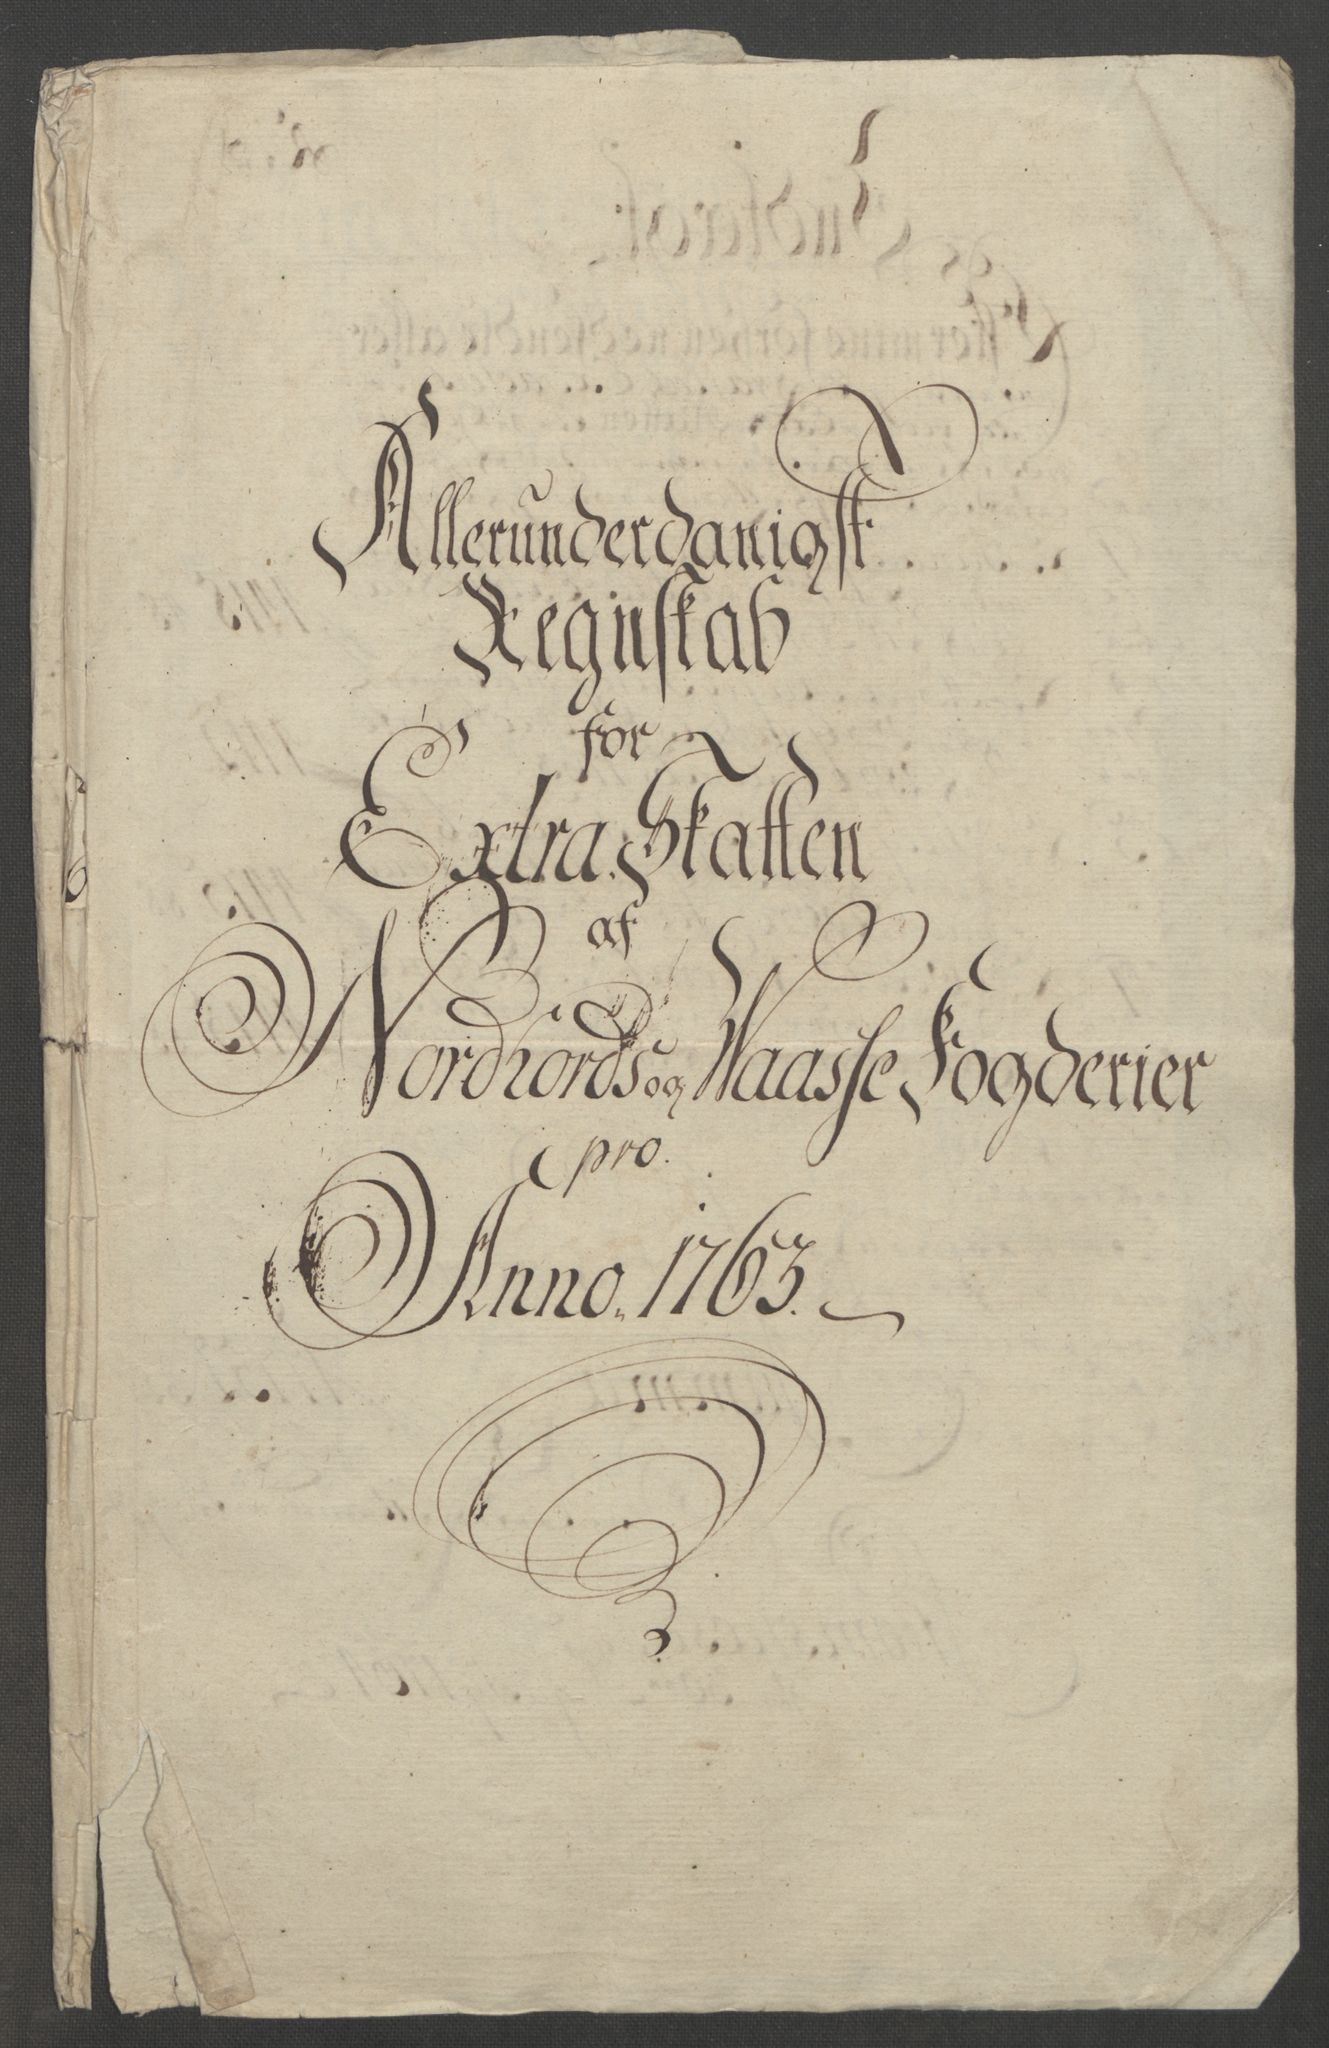 Allerunderdanigst
Regnskab
for
Extra Skatten
af
Nordhords og Waasse Fogderier
pro.
Anno. 1763.